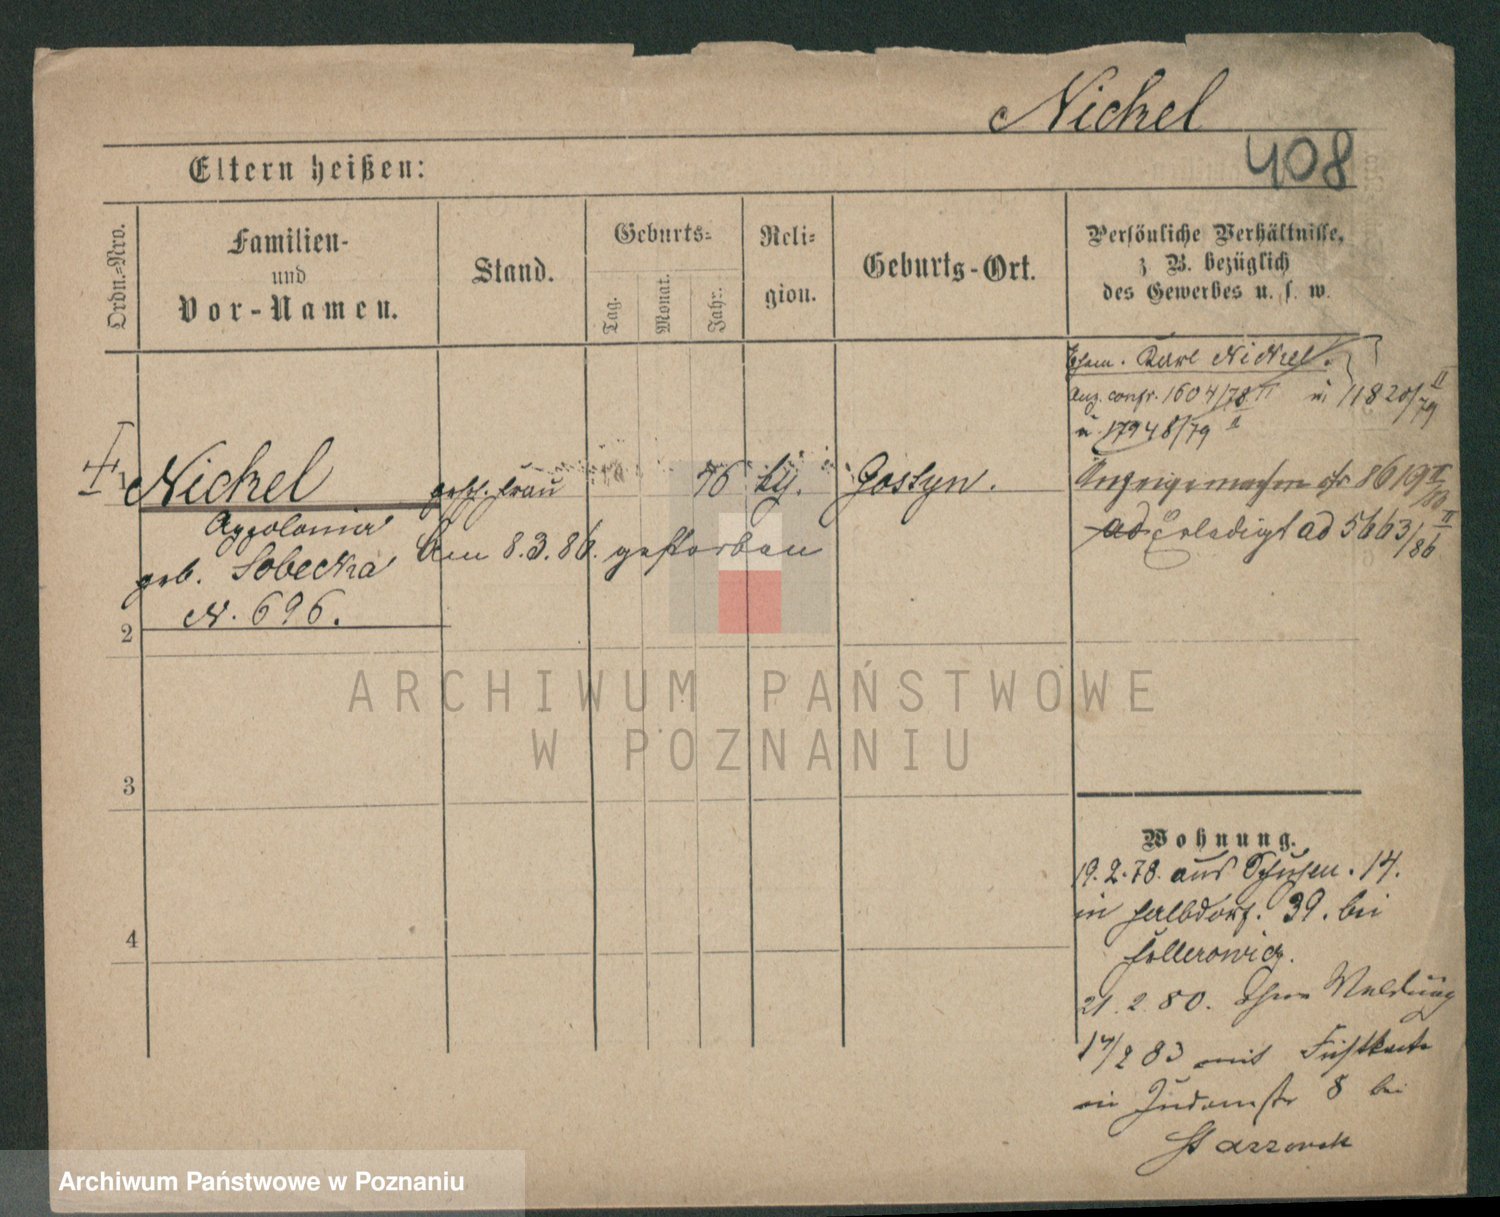 Nickel
408
Eltern heißen:
Ordn.=Nro.
Familien-
und
Vor-Namen.
Stand.
Geburts=
Tag.
Monat.
Jahr.
Reli=
gion.
Geburts-Ort.
Persönliche Verhältnisse,
z. B. bezüglich
des Gewerbes u. s. w.
Ehem. Karl Nickel.
Anz. confr. 1604/78 II u. 11820/79 II
u. 17948/79 II
1 Nickel
Appolonia
geb. Sobecka
N. 696.
gesch. Frau
76
Gostyn.
8619 II/83
ad Erledigt ad 5663/86 II
Am 8.3.86. gestorben
2
3
4
ARCHIWUM PAŃSTWOWE
W POZNANIU
Wohnung.
19.2.78. aus Schützen. 14.
in Halbdorf. 39. bei
21.2.80. Ohne Meldung
17/2 83 mit
in Judenstr 8 bei
Archiwum Państwowe w Poznaniu